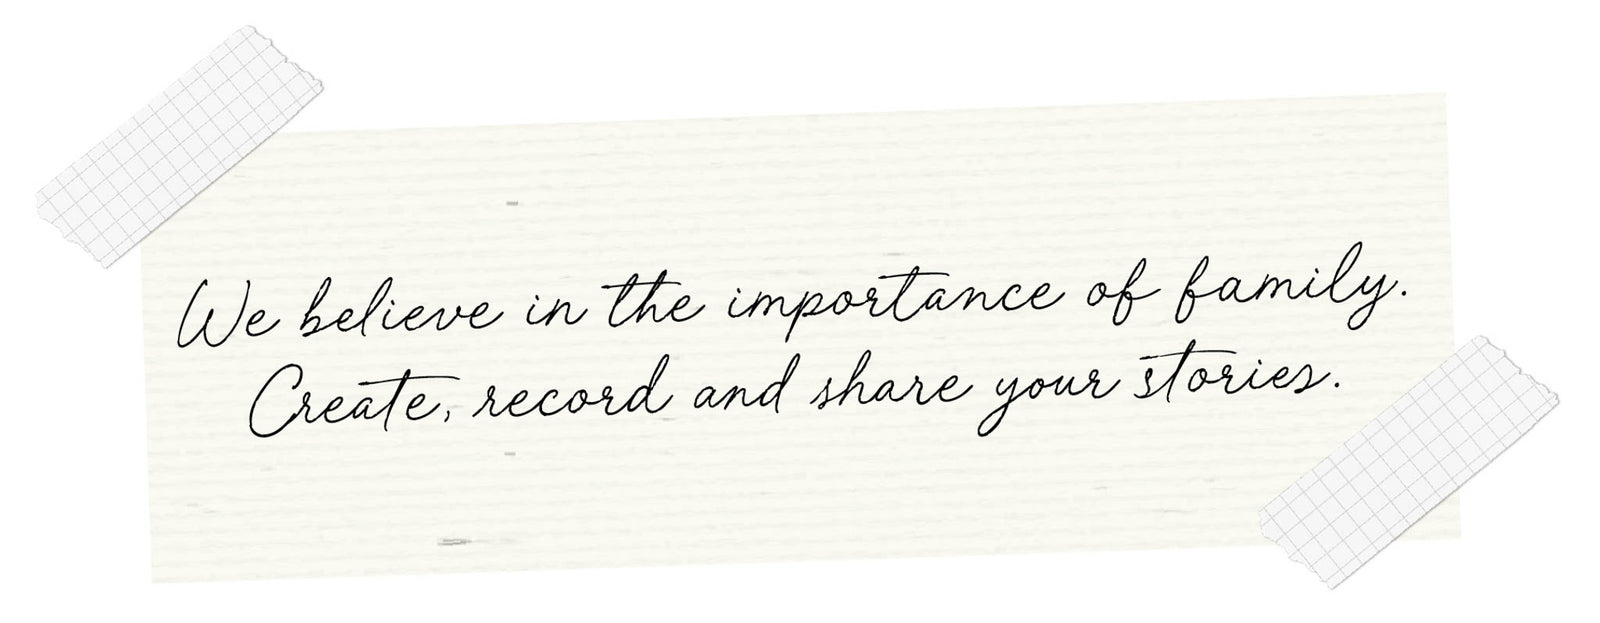 We believe in the importance of family.
Create, record and share your stories.